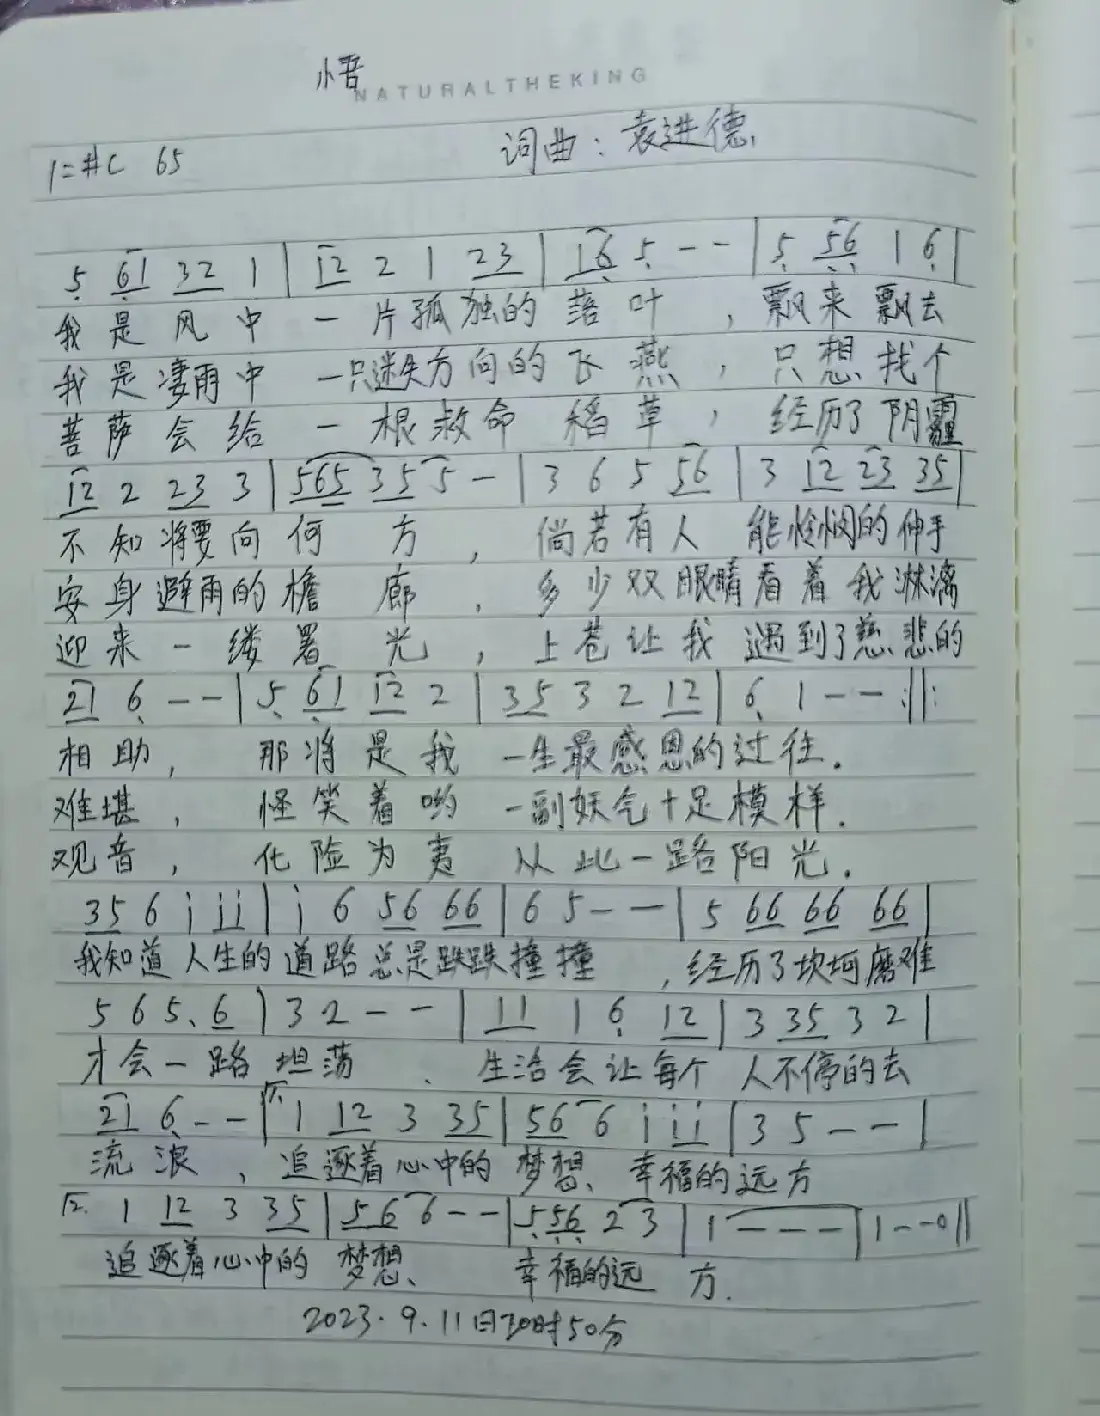 悟
NATURALTHEKING
1=#C 65 词曲：袁进德
5 61 32 1 | 12 2 1 23 | 16 5 - - | 5 56 1 6 |
我是风中一片孤独的落叶，飘来飘去
我是凄雨中一只迷失方向的飞燕，只想找个
菩萨会给一根救命稻草，经历了阴霾
12 2 23 3 | 565 35 5 - | 3 6 5 56 | 3 12 23 35 |
不知将要向何方，倘若有人能怜悯的伸手
安身避雨的檐廊，多少双眼睛看着我淋漓
迎来一缕署光，上苍让我遇到了慈悲的
21 6 - - | 5 61 12 2 | 35 3 2 12 | 6 1 - - :||:
相助，那将是我一生最感恩的过往.
难堪，怪笑着哟一副妖气十足模样.
观音，化险为夷从此一路阳光.
35 6 i ii | i 6 56 66 | 6 5 - - | 5 66 66 66 |
我知道人生的道路总是跌跌撞撞，经历了坎坷磨难
5 6 5. 6 | 3 2 - - | 11 1 6 12 | 3 35 3 2 |
才会一路坦荡、生活会让每个人不停的去
21 6 - - | 1. 1 12 3 35 | 56 6 i ii | 3 5 - - |
流浪，追逐着心中的梦想、幸福的远方
2. 1 12 3 35 | 56 6 - - | 5 56 2 3 | 1 - - - | 1 - - 0 ||
追逐着心中的梦想、幸福的远方.
2023.9.11日20时50分